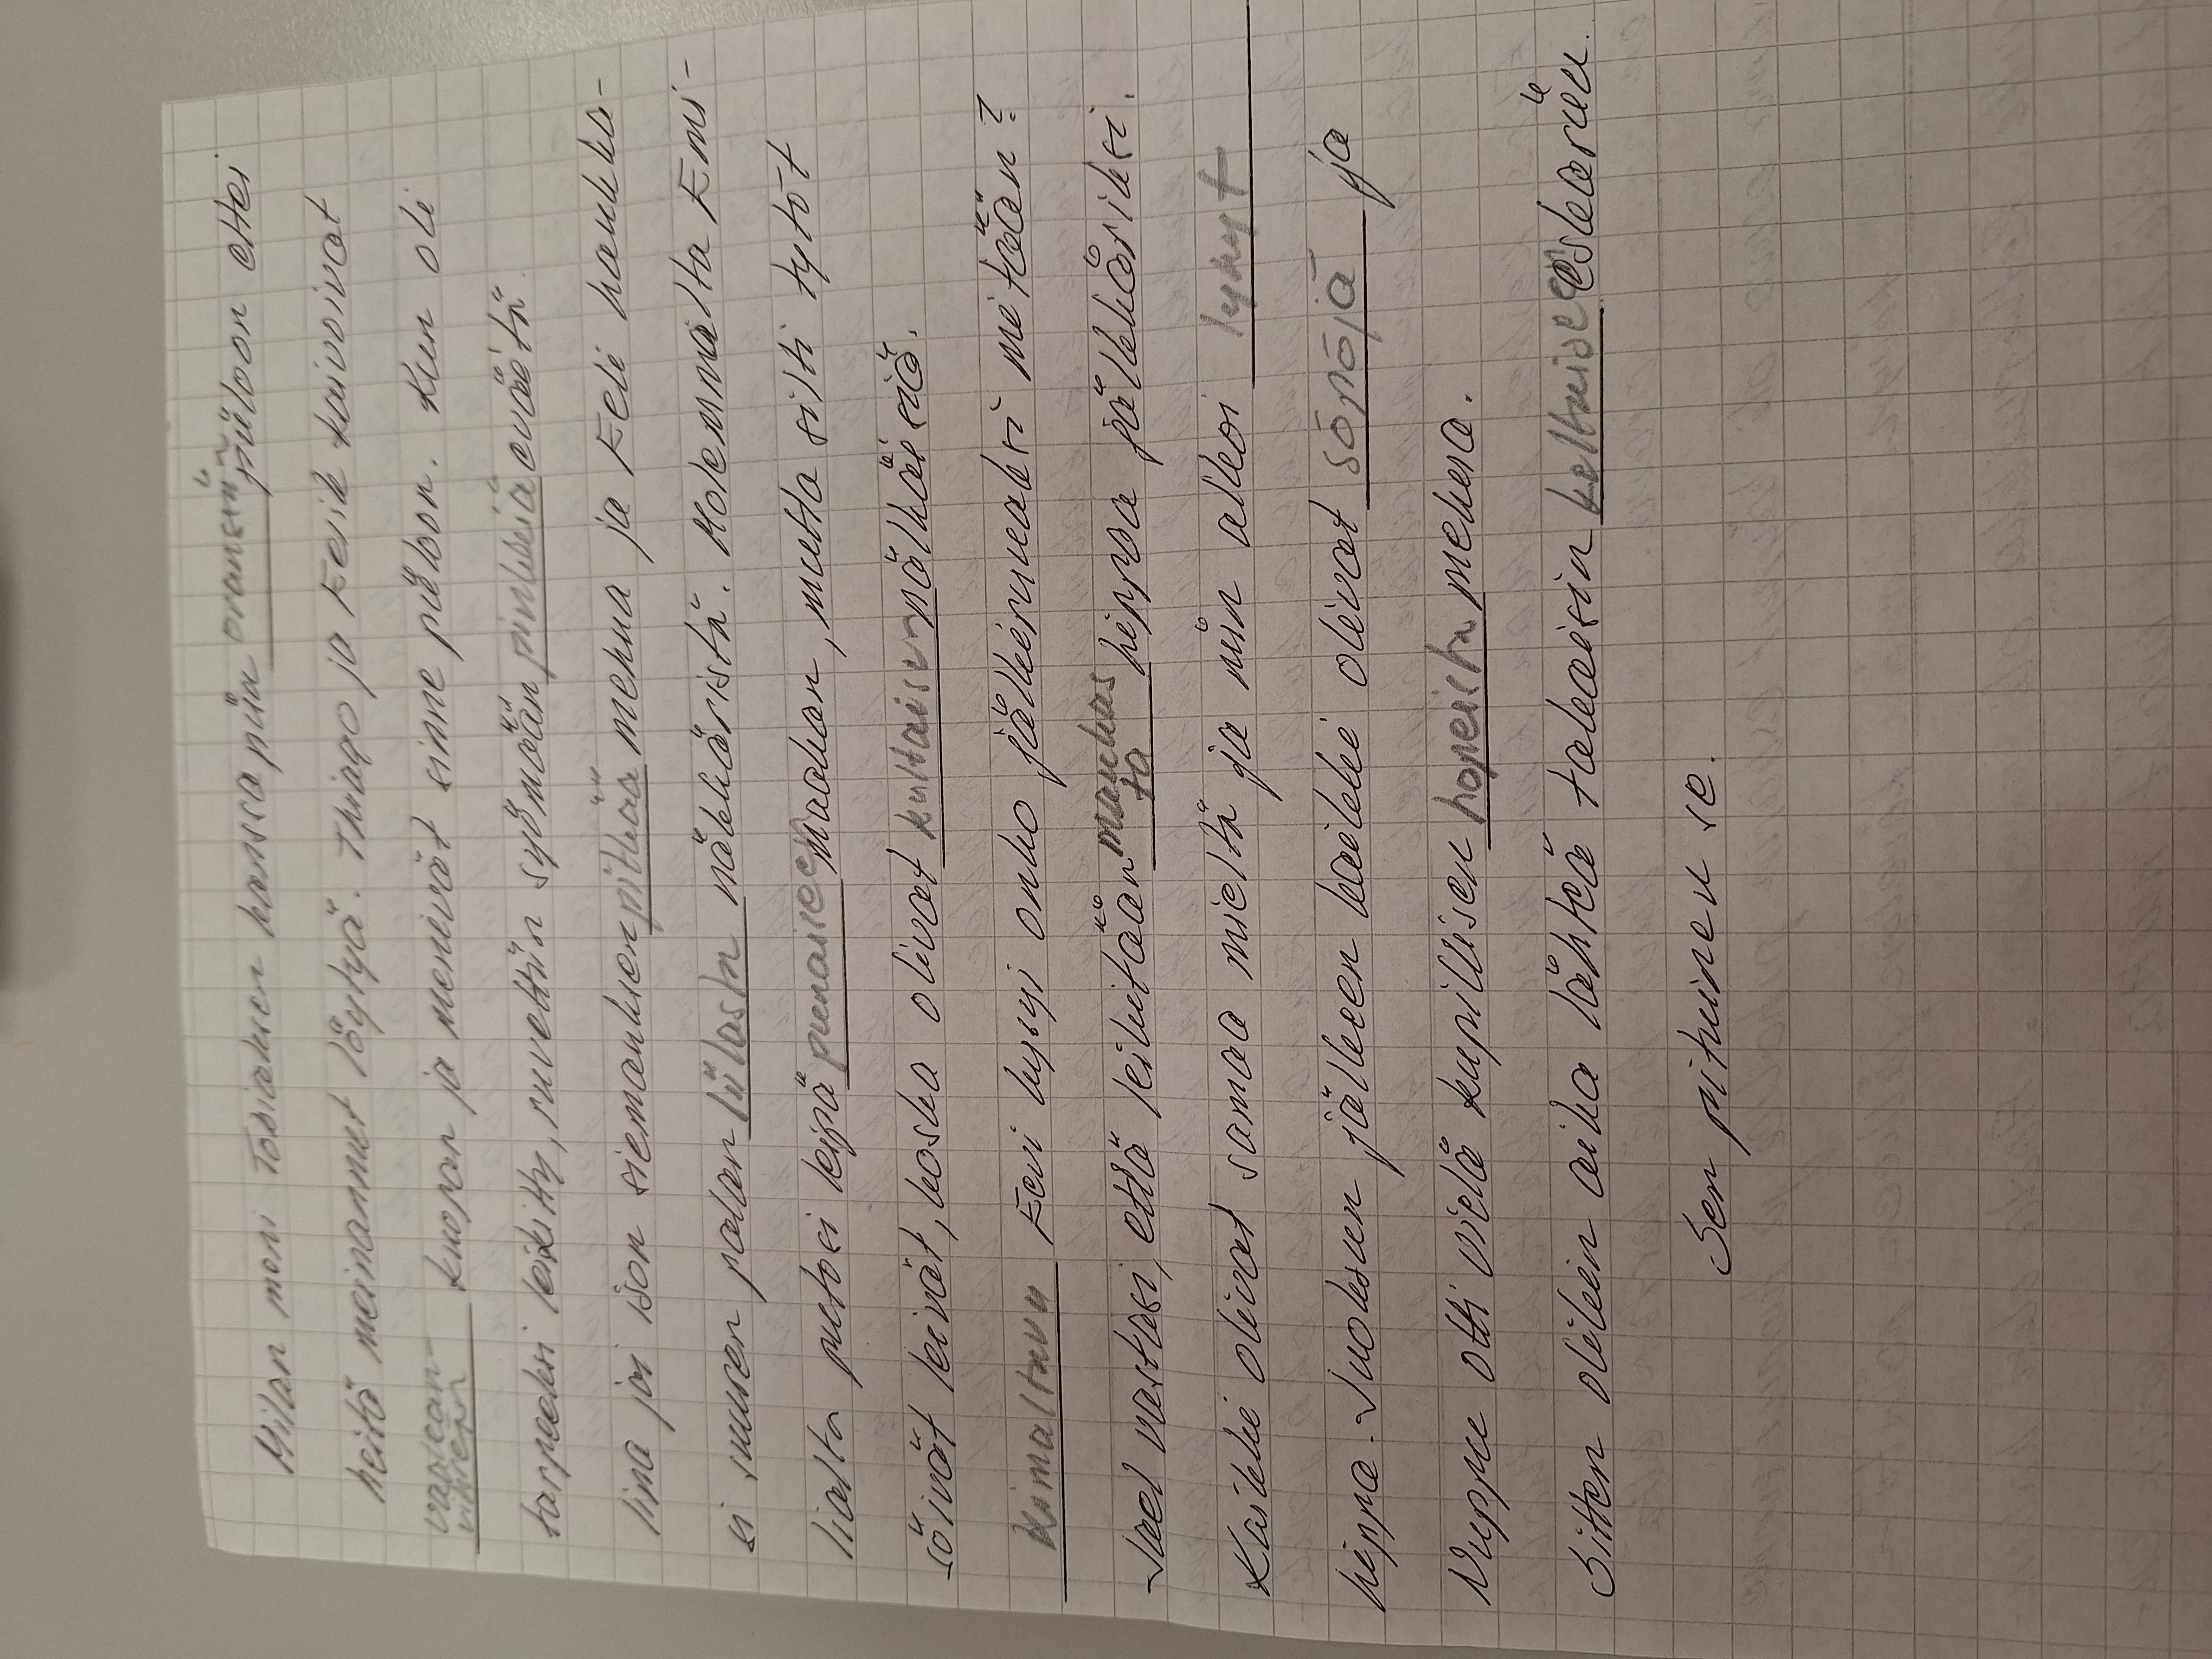 Milan meni Tobiaksen kanssa niin oranssiin piiloon ettei
heitä meinannut löytyä. Thiago ja Eerik kaivoivat
vaalean-
vihreän kuopan ja menivät sinne piiloon. Kun oli
tarpeeksi leikitty, ruvettiin syömään pinkkiä evästä.
Iina joi ison siemauksen pitkää mehua ja Eeli haukka-
si suuren palan liilasta näkkäristä. Molemmalta Emi-
lialta putosi leipä punaiseen maahan, mutta silti tytöt
söivät leivät, koska olivat kultaisen nälkäisiä.
kimaltava Eevi kysyi onko jälkiruuaksi mitään?
Jael vastasi, että leikitään mauhas
ta hippaa jälkkäriksi.
Kaikki olivat samaa mieltä ja niin alkoi lyhyt
hippa. Juoksun jälkeen kaikki olivat söpöjä ja
Nuppu otti vielä kupillisen hopeista mehua.
Sitten olikin aika lähteä takaisin keltaiseen eskariin.
Sen pituinen se.